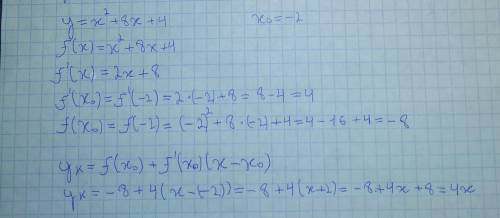 y = x² + 8x + 4 x₀ = -2
f'(x) = x² + 8x + 4
f'(x) = 2x + 8
f'(x₀) = f'(-2) = 2 · (-2) + 8 = 8 - 4 = 4
f(x₀) = f(-2) = (-2)² + 8 · (-2) + 4 = 4 - 16 + 4 = -8
yₖ = f(x₀) + f'(x₀)(x - x₀)
yₖ = -8 + 4(x - (-2)) = -8 + 4(x + 2) = -8 + 4x + 8 = 4x